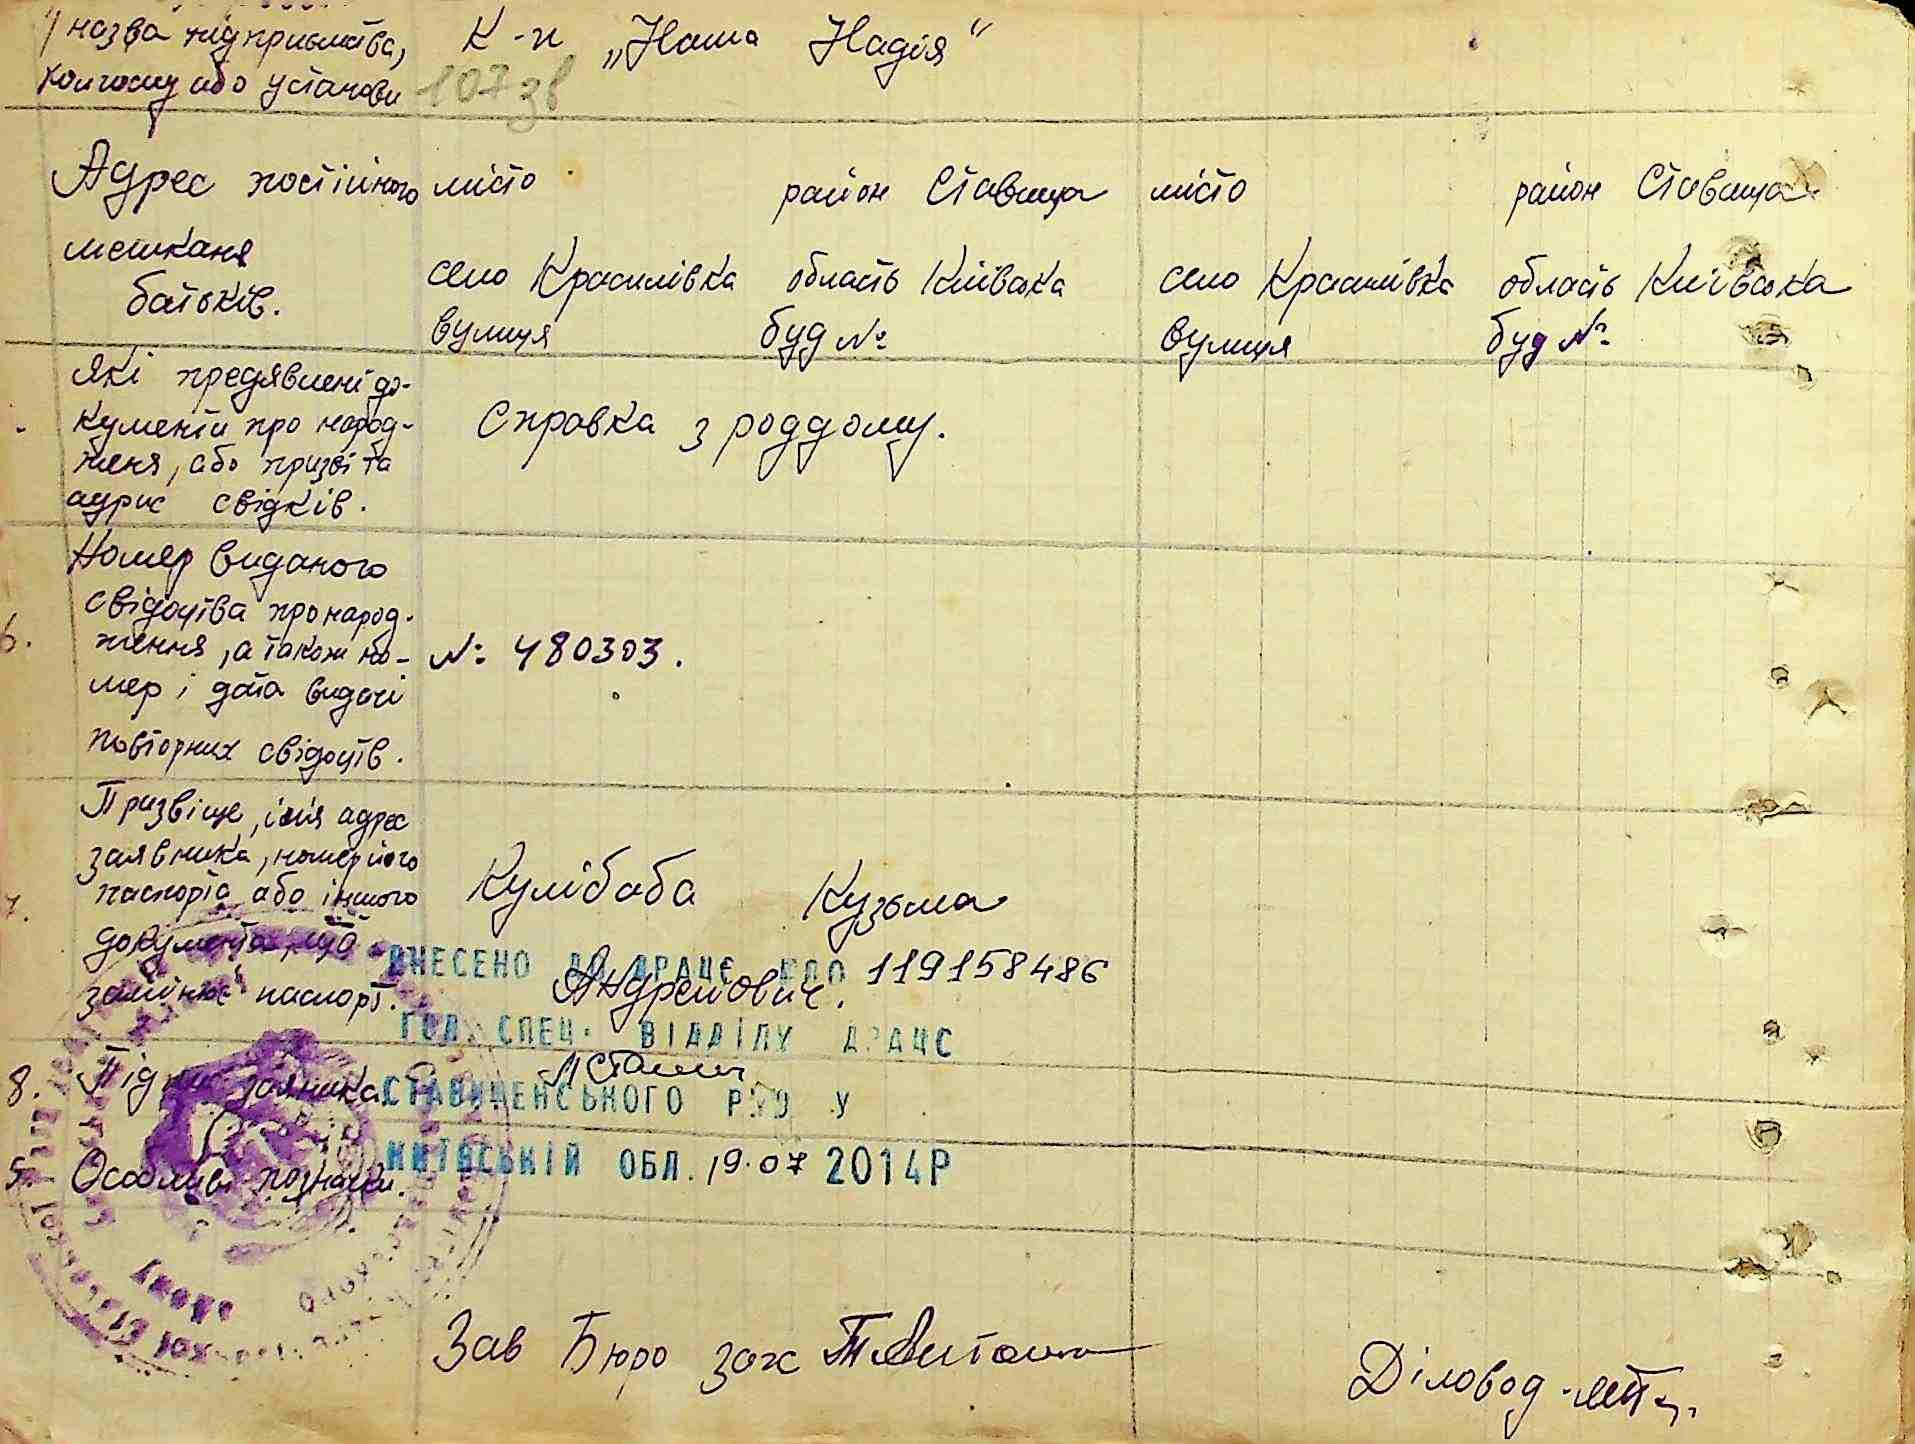 назва підприємства, К-п „Наша Надія“
колгоспу або установи 107 зв
Адрес постійного місто район Ставища місто район Ставища
мешканя
батьків. село Красилівка область Київська село Красилівка область Київська
вулиця буд № вулиця буд №
які предявлені до-
кументи про народ- Справка з роддому.
женя, або призві та
адрис свідків.
Номер виданого
свідоцтва про народ-
6. ження, а також но- № 480303.
мер і дата видачі
повторних свідоцтв.
Призвіще, імя адрес
заявника, номер його
7. паспорта або іншого Кулібаба Кузьма
документа, що ВНЕСЕНО ДО ДРАЦС 119158486
замінює паспорт. Андрейович.
ГОЛ. СПЕЦ. ВІДДІЛУ ДРАЦС
8. Підпис заявника
СТАВИЩЕНСЬКОГО РУЮ У
5. Особливі позначки. КИЇВСЬКІЙ ОБЛ. 19.07 2014Р
Зав Бюро загс
Діловод